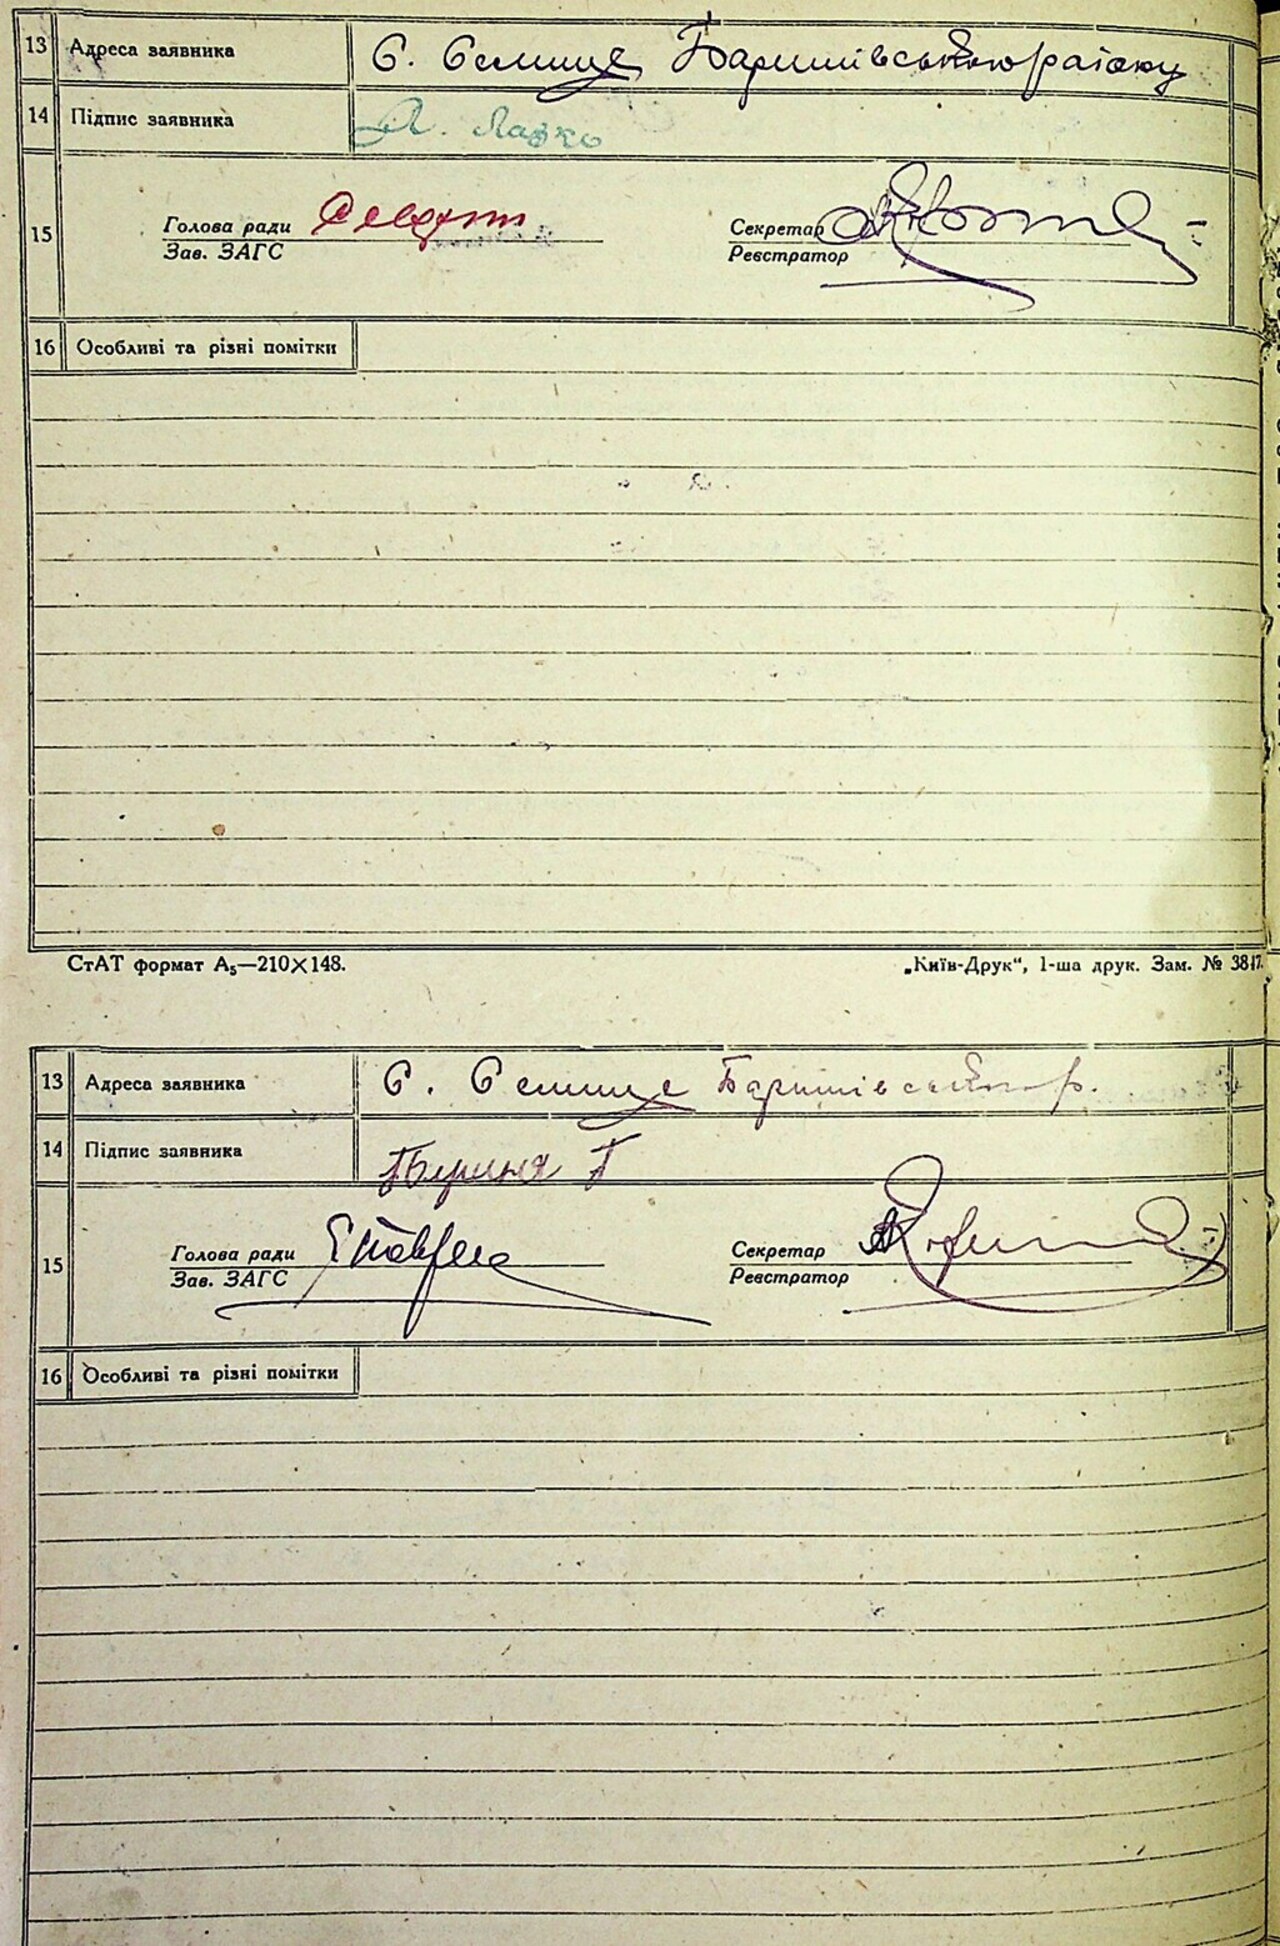 13 Адреса заявника С. Селище Баришівського району
14 Підпис заявника Л. Лазко
15
Голова ради Секретар
Зав. ЗАГС Реєстратор
16 Особливі та різні помітки
СтАТ формат А₅—210×148. „Київ-Друк“, 1-ша друк. Зам. № 3817.
13 Адреса заявника С. Селище Баришівського р.
14 Підпис заявника
15
Голова ради Секретар
Зав. ЗАГС Реєстратор
16 Особливі та різні помітки